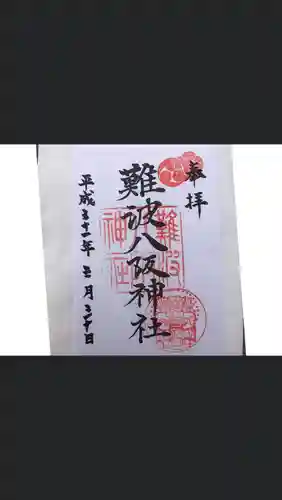 奉拝
難波八阪神社
平成三十一年三月三十日